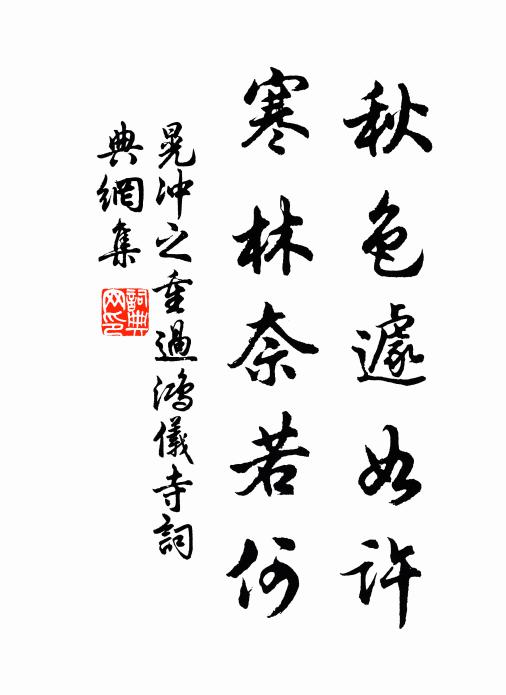 秋色遽如許
寒林奈若何
晃冲之重過鴻儀寺詞
典網集
詞典網印